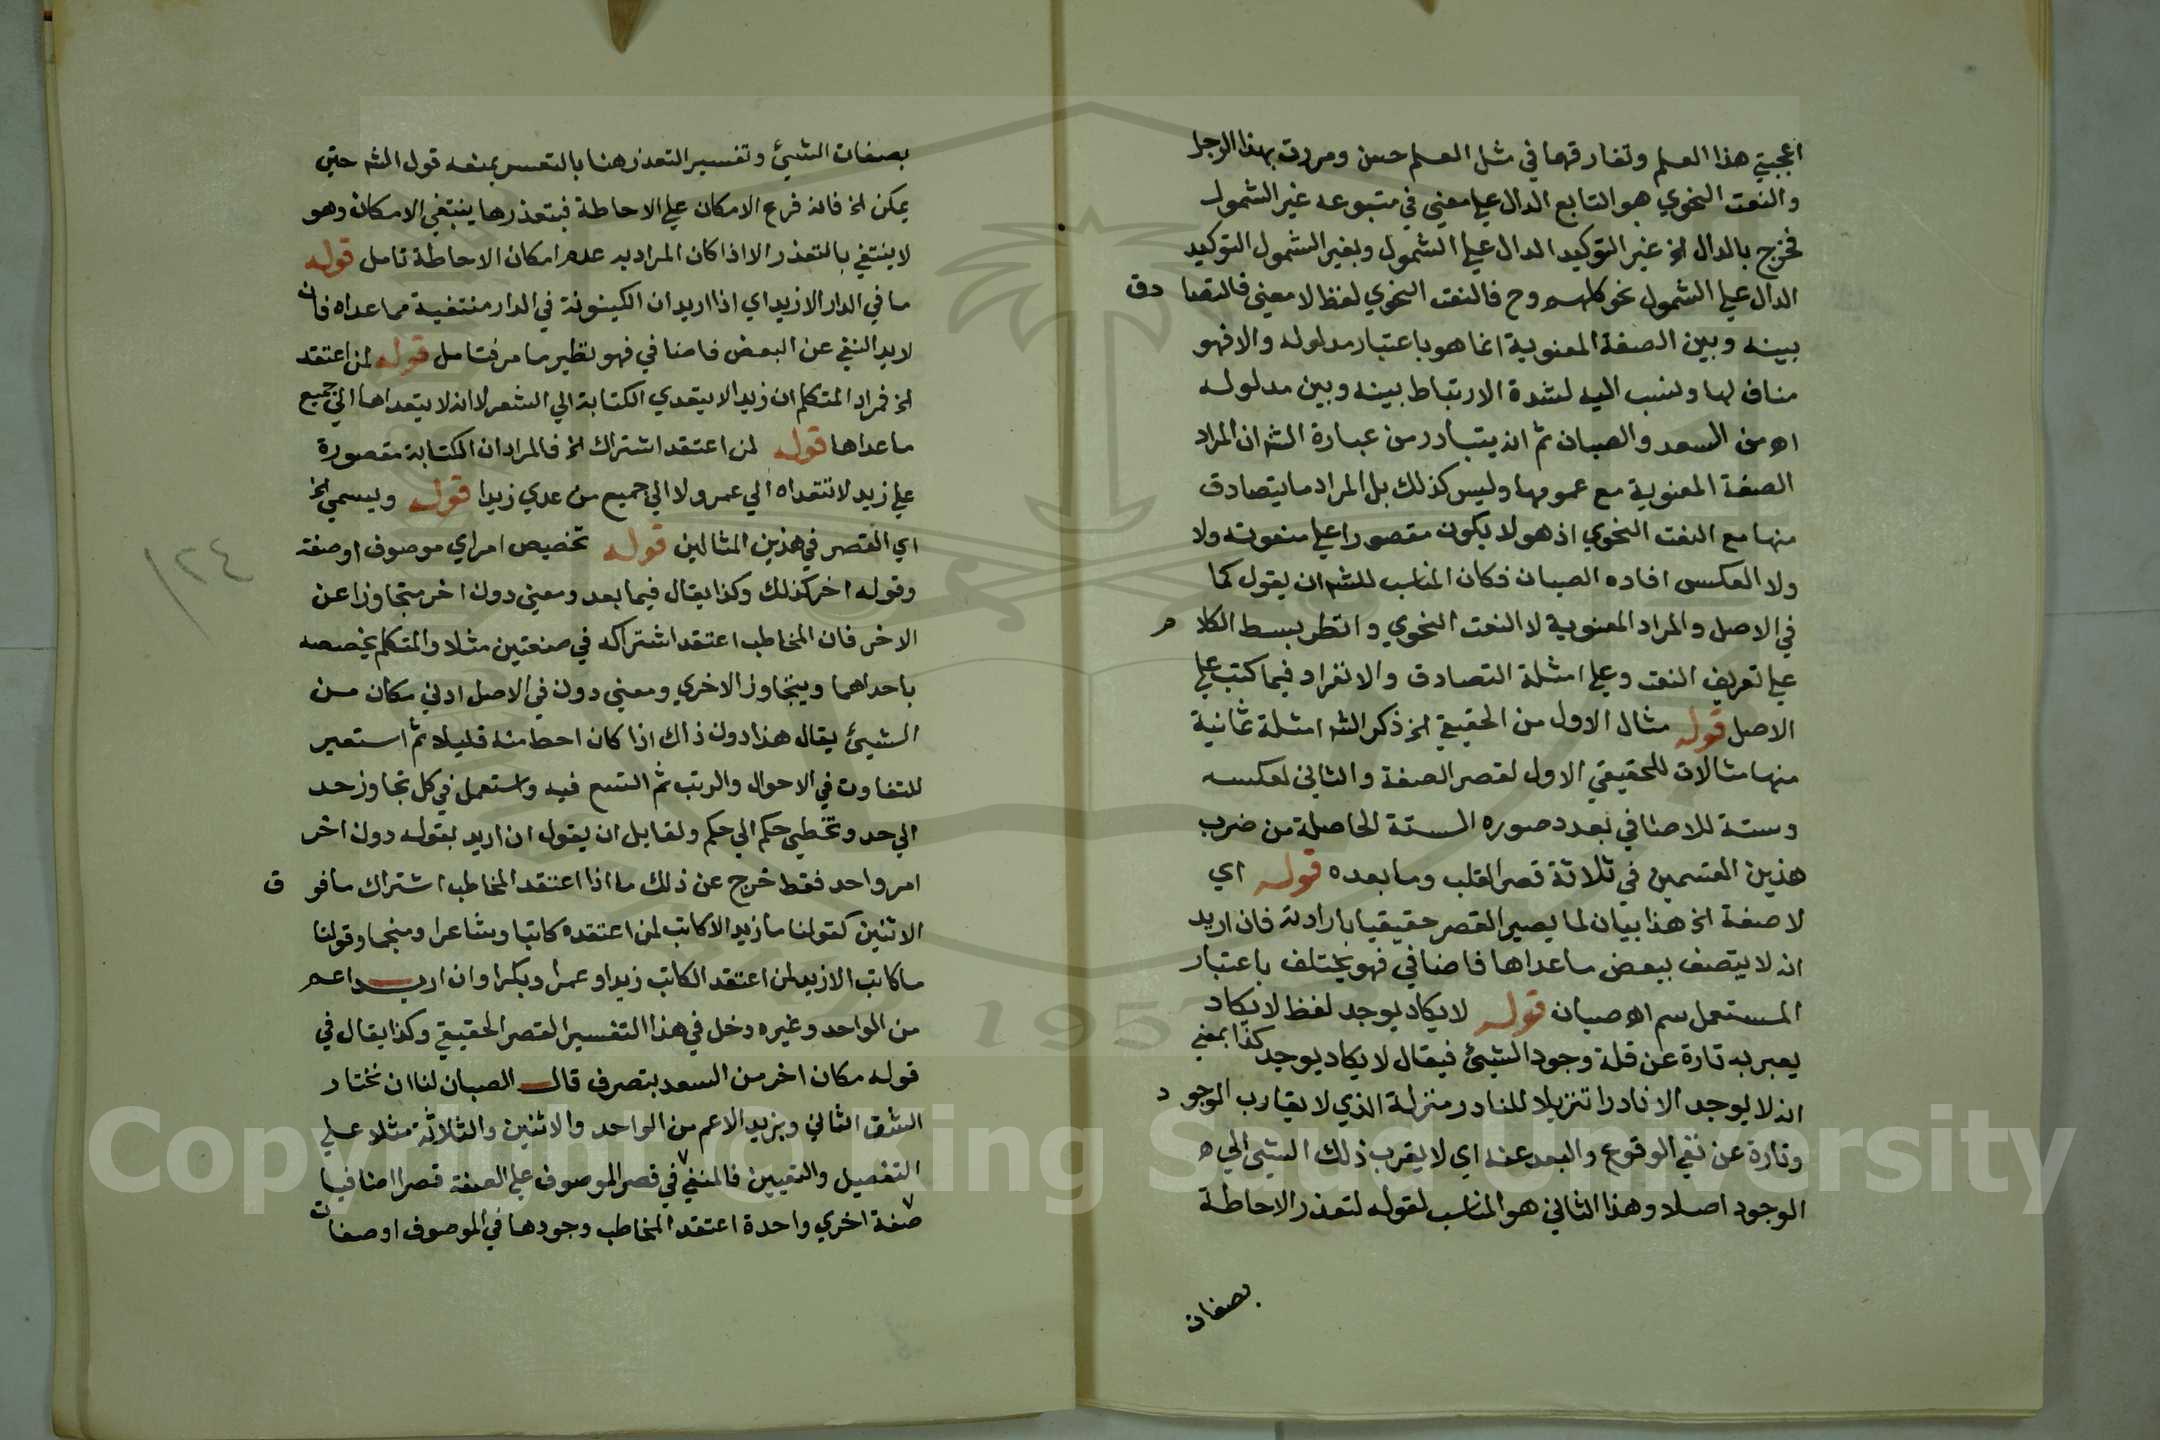 اعجبني هذا العلم وتفارقهما في مثل العلم حسن ومررت بهذا الرجل
والنعت النحوي هو التابع الدال علي معني في متبوعه غير الشمول
فخرج بالدال الخ غير التوكيد الدال علي الشمول وبغير الشمول التوكيد
الدال علي الشمول نحو كلهم وح فالنعت النحوي لفظ لا معني فالتصادق
بينه وبين الصفة المعنوية انما هو باعتبار مدلوله والا فهو
مناف لها ولنسب اليه لشدة الارتباط بينه وبين مدلوله
اه من السعد والصبان ثم انه يتبادر من عبارة الشه ان المراد
الصفة المعنوية مع عمومها وليس كذلك بل المراد ما يتصادق
منها مع النعت النحوي اذ هو لا يكون مقصورا علي منعوته ولا
ولا العكس افاده الصبان فكان المناسب للشه ان يقول كما
في الاصل والمراد المعنوية لا النعت النحوي وانظر بسط الكلام
علي تعريف النعت وعلي امثلة التصادق والانفراد فيما كتب علي
الاصل قوله مثال الاول من الحقيقي الخ ذكر الشه امثلة ثمانية
منها مثالان للحقيقي الاول لقصر الصفة والثاني لعكسه
وستة للاضافي بعدد صوره الستة الحاصلة من ضرب
هذين القسمين في ثلاثة قصر القلب وما بعده قوله اي
لا صفة الخ هذا بيان لما يصير القصر حقيقيا بارادته فان اريد
انه لا يتصف ببعض ما عداها فاضافي فهو يختلف باعتبار
المستعمل سم اه صبان قوله لا يكاد يوجد لفظ لا يكاد
يعبر به تارة عن قلة وجود الشيئ فيقال لا يكاد يوجد كذا بمعني
انه لا يوجد الا نادرا تنزيلا للنادر منزلة الذي لا يقارب الوجود
وتارة عن نفي الوقوع والبعد عنه اي لا يقرب ذلك الشيئ الي ه
الوجود اصلا وهذا الثاني هو المناسب لقوله لتعذر الاحاطة
بصفات
بصفات الشيئ وتفسير التعذر هنا بالتعسر يمنعه قول الشه حتي
يمكن الخ فانه فرع الامكان علي الاحاطة فبتعذرها ينتفي الامكان وهو
لا ينتفي بالتعذر الا اذا كان المراد به عدم امكان الاحاطة تامل قوله
ما في الدار الا زيد اي اذا اريد ان الكينونة في الدار منتفية مما عداه فان
لا يد النفي عن البعض فاضافي فهو نظير ما مر فتامل قوله لمن اعتقد
الخ فمراد المتكلم ان زيدا لا يتعدي الكتابة الي الشعر لا انه لا يتعداها الي جميع
ما عداها قوله لمن اعتقد اشتراك الخ فالمراد ان الكتابة مقصورة
علي زيد لا تتعداه الي عمرو لا الي جميع من عدي زيدا قوله ويسمي الخ
اي القصر في هذين المثالين قوله تخصيص امر اي موصوف او صفة
وقوله اخر كذلك وكذا يقال فيما بعد ومعني دون اخر متجاوزا عن
الاخر فان المخاطب اعتقد اشتراكه في صفتين مثلا والمتكلم يخصصه
باحداهما ويتجاوز الاخري ومعني دون في الاصل ادني مكان من
الشيئ يقال هذا دون ذاك اذا كان احط منه قليلا ثم استعير
للتفاوت في الاحوال والرتب ثم اتسع فيه واستعمل في كل تجاوز حد
الي حد وتخطي حكم الي حكم ولقايل ان يقول ان اريد بقوله دون اخر
امر واحد فقط خرج عن ذلك ما اذا اعتقد المخاطب اشتراك ما فوق
الاثنين كقولنا ما زيد الا كاتب لمن اعتقده كاتبا وشاعرا ومنجما وقولنا
ما كاتب الا زيد لمن اعتقد الكاتب زيدا وعمرا وبكرا وان اريد اعم
من الواحد وغيره دخل في هذا التفسير القصر الحقيقي وكذا يقال في
قوله مكان اخر من السعد بتصرف قال الصبان لنا ان نختار
الشق الثاني ويزيد الاعم من الواحد والاثنين والثلاثة مثلا علي
التفصيل والتعيين فالمنفي في قصر الموصوف علي الصفة قصرا اضافيا
صفة اخري واحدة اعتقد المخاطب وجودها في الموصوف او صفات
١٢٤
1957
Copyright © King Saud University